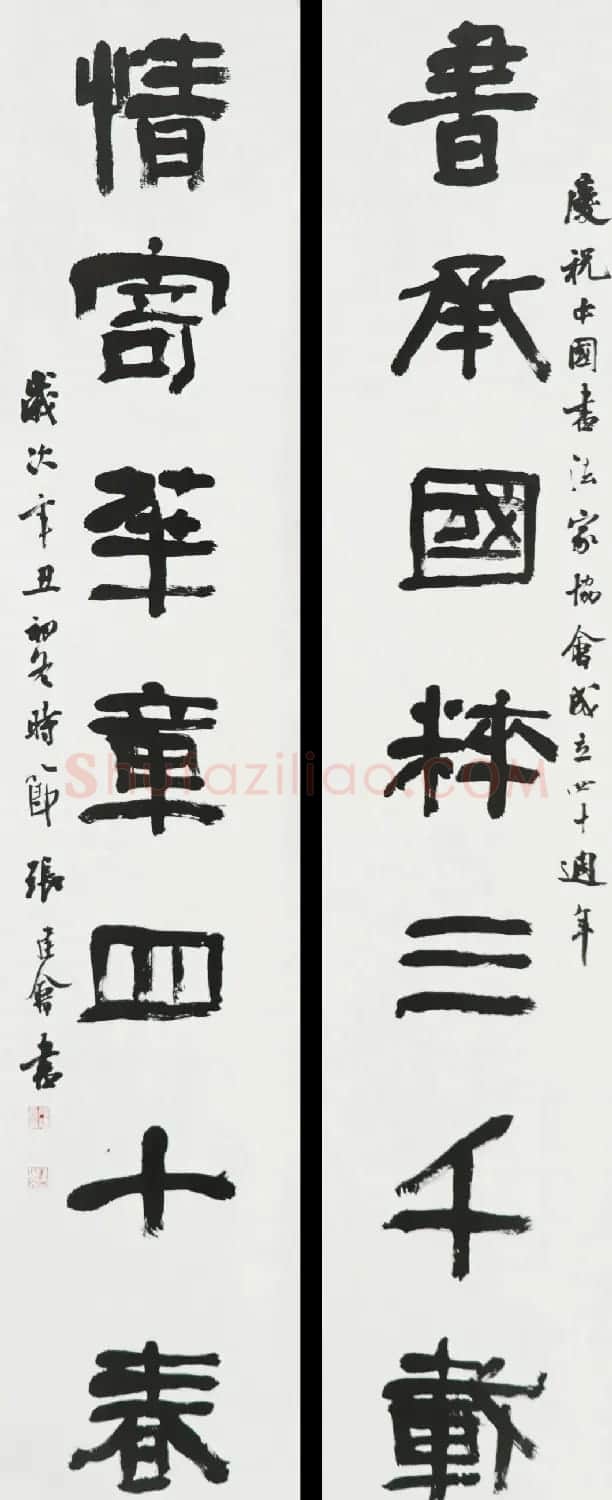 慶祝中國书法家協會成立四十週年
書承國粹三千載
情寄華章四十春
歲次辛丑初冬時節張建會書
Shufaziliao.COM